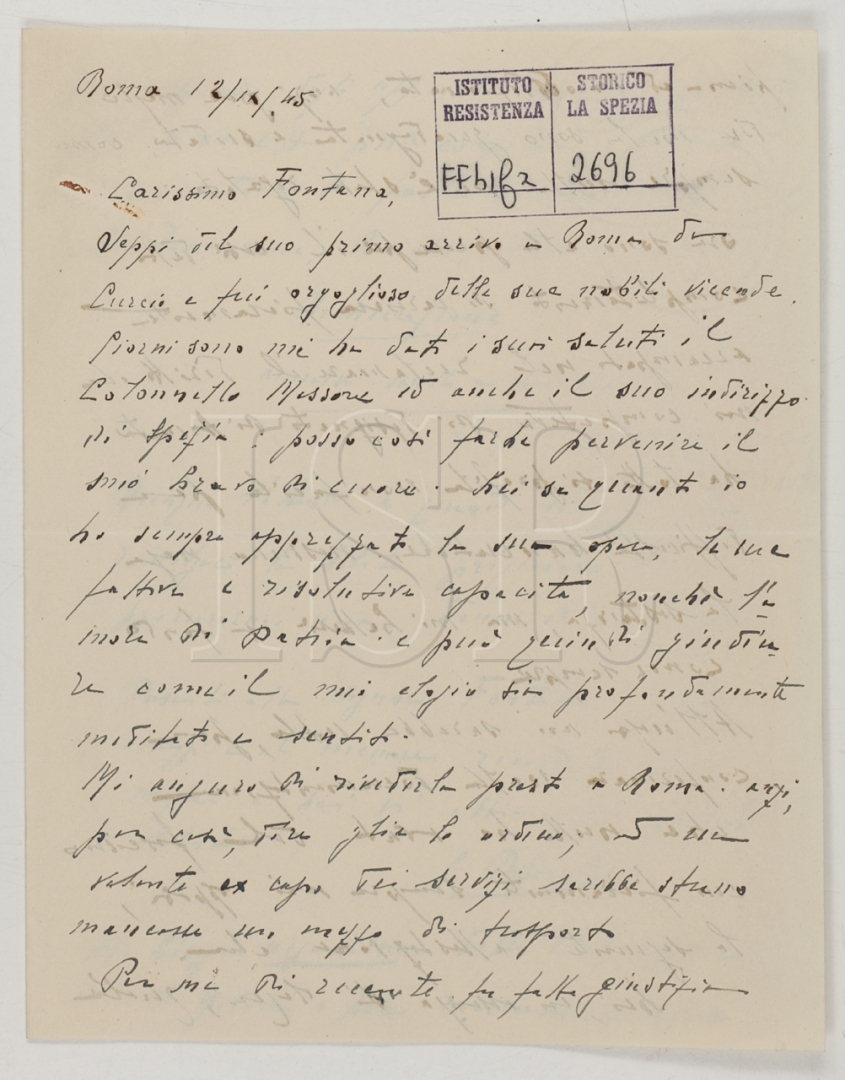 Roma 12/11/45
ISTITUTO STORICO
RESISTENZA LA SPEZIA
2696
Carissimo Fontana,
Seppi del suo primo arrivo a Roma da
Curcio e fui orgoglioso delle sue nobili vicende.
Giorni sono mi ha dati i suoi saluti il
Colonnello Massone ed anche il suo indirizzo
di Spezia: posso così farle pervenire il
mio bravo di cuore. Lei sa quanto io
ho sempre apprezzato la sua opera, la sua
fattiva e risolutiva capacità, nonché l'a
more di Patria. e può quindi giudica
re come il mio elogio sia profondamente
meditato e sentito.
Mi auguro di rivederla presto a Roma. anzi,
per così dire glie lo ordino; ad un
valente ex capo dei servizi sarebbe strano
mancasse un mezzo di trasporto
Per me di recente fu fatta giustizia
ISR